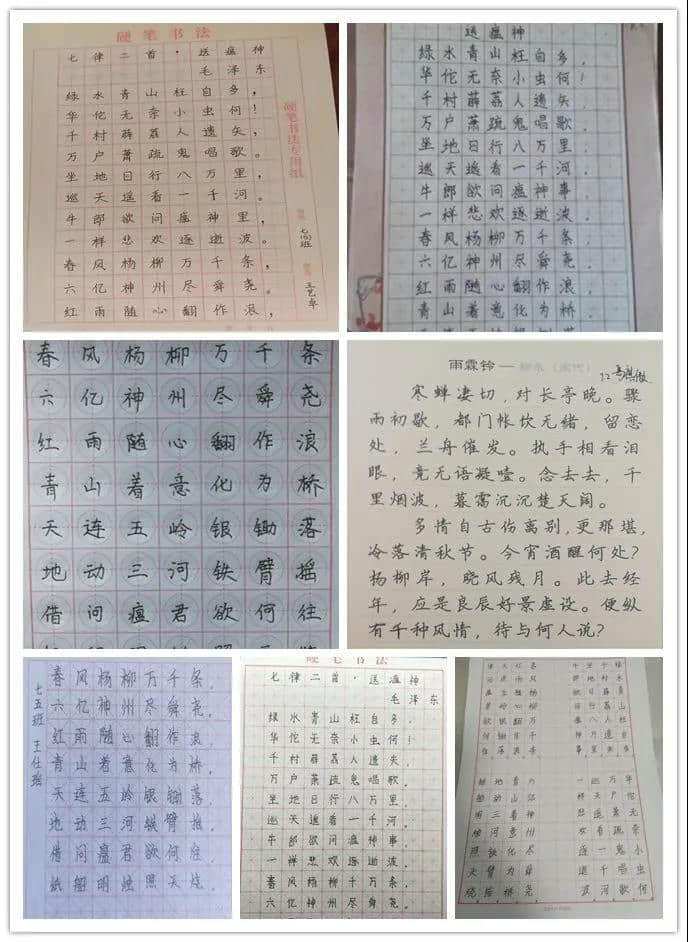 硬笔书法
七律二首·送瘟神
毛泽东
绿水青山枉自多，
华佗无奈小虫何！
千村薜荔人遗矢，
万户萧疏鬼唱歌。
坐地日行八万里，
巡天遥看一千河。
牛郎欲问瘟神里，
一样悲欢逐逝波。
春风杨柳万千条，
六亿神州尽舜尧。
红雨随心翻作浪，
硬笔书法专用纸
王艺卓
送瘟神
绿水青山枉自多，
华佗无奈小虫何！
千村薜荔人遗矢，
万户萧疏鬼唱歌。
坐地日行八万里，
巡天遥看一千河。
牛郎欲问瘟神事，
一样悲欢逐逝波。
春风杨柳万千条，
六亿神州尽舜尧。
红雨随心翻作浪，
青山着意化为桥。
春风杨柳万千条
六亿神州尽舜尧
红雨随心翻作浪
青山着意化为桥
天连五岭银锄落
地动三河铁臂摇
借问瘟君欲何往
雨霖铃—柳永（宋代）
寒蝉凄切，对长亭晚。骤
雨初歇，都门帐饮无绪，留恋
处，兰舟催发。执手相看泪
眼，竟无语凝噎。念去去，千
里烟波，暮霭沉沉楚天阔。
多情自古伤离别，更那堪，
冷落清秋节。今宵酒醒何处？
杨柳岸，晓风残月。此去经
年，应是良辰好景虚设。便纵
有千种风情，待与何人说？
七五班 王仕瑶
春风杨柳万千条，
六亿神州尽舜尧。
红雨随心翻作浪
青山着意化为桥，
天连五岭银锄落
地动三河铁臂摇，
借问瘟君欲何往，
纸船明烛照天烧，
硬笔书法
七律二首·送瘟神
毛泽东
绿水青山枉自多，
华佗无奈小虫何！
千村薜荔人遗矢，
万户萧疏鬼唱歌
坐地日行八万里，
巡天遥看一千河，
牛郎欲问瘟神事，
一样悲欢逐逝波，
春风杨柳千万条，
六亿神州尽舜尧。
绿水青山枉自多
华佗无奈小虫何
千村薜荔人遗矢
万户萧疏鬼唱歌
坐地日行八万里
巡天遥看一千河
一样悲欢逐逝波
六亿神州尽舜尧
青山着意化为桥
地动三河铁臂摇